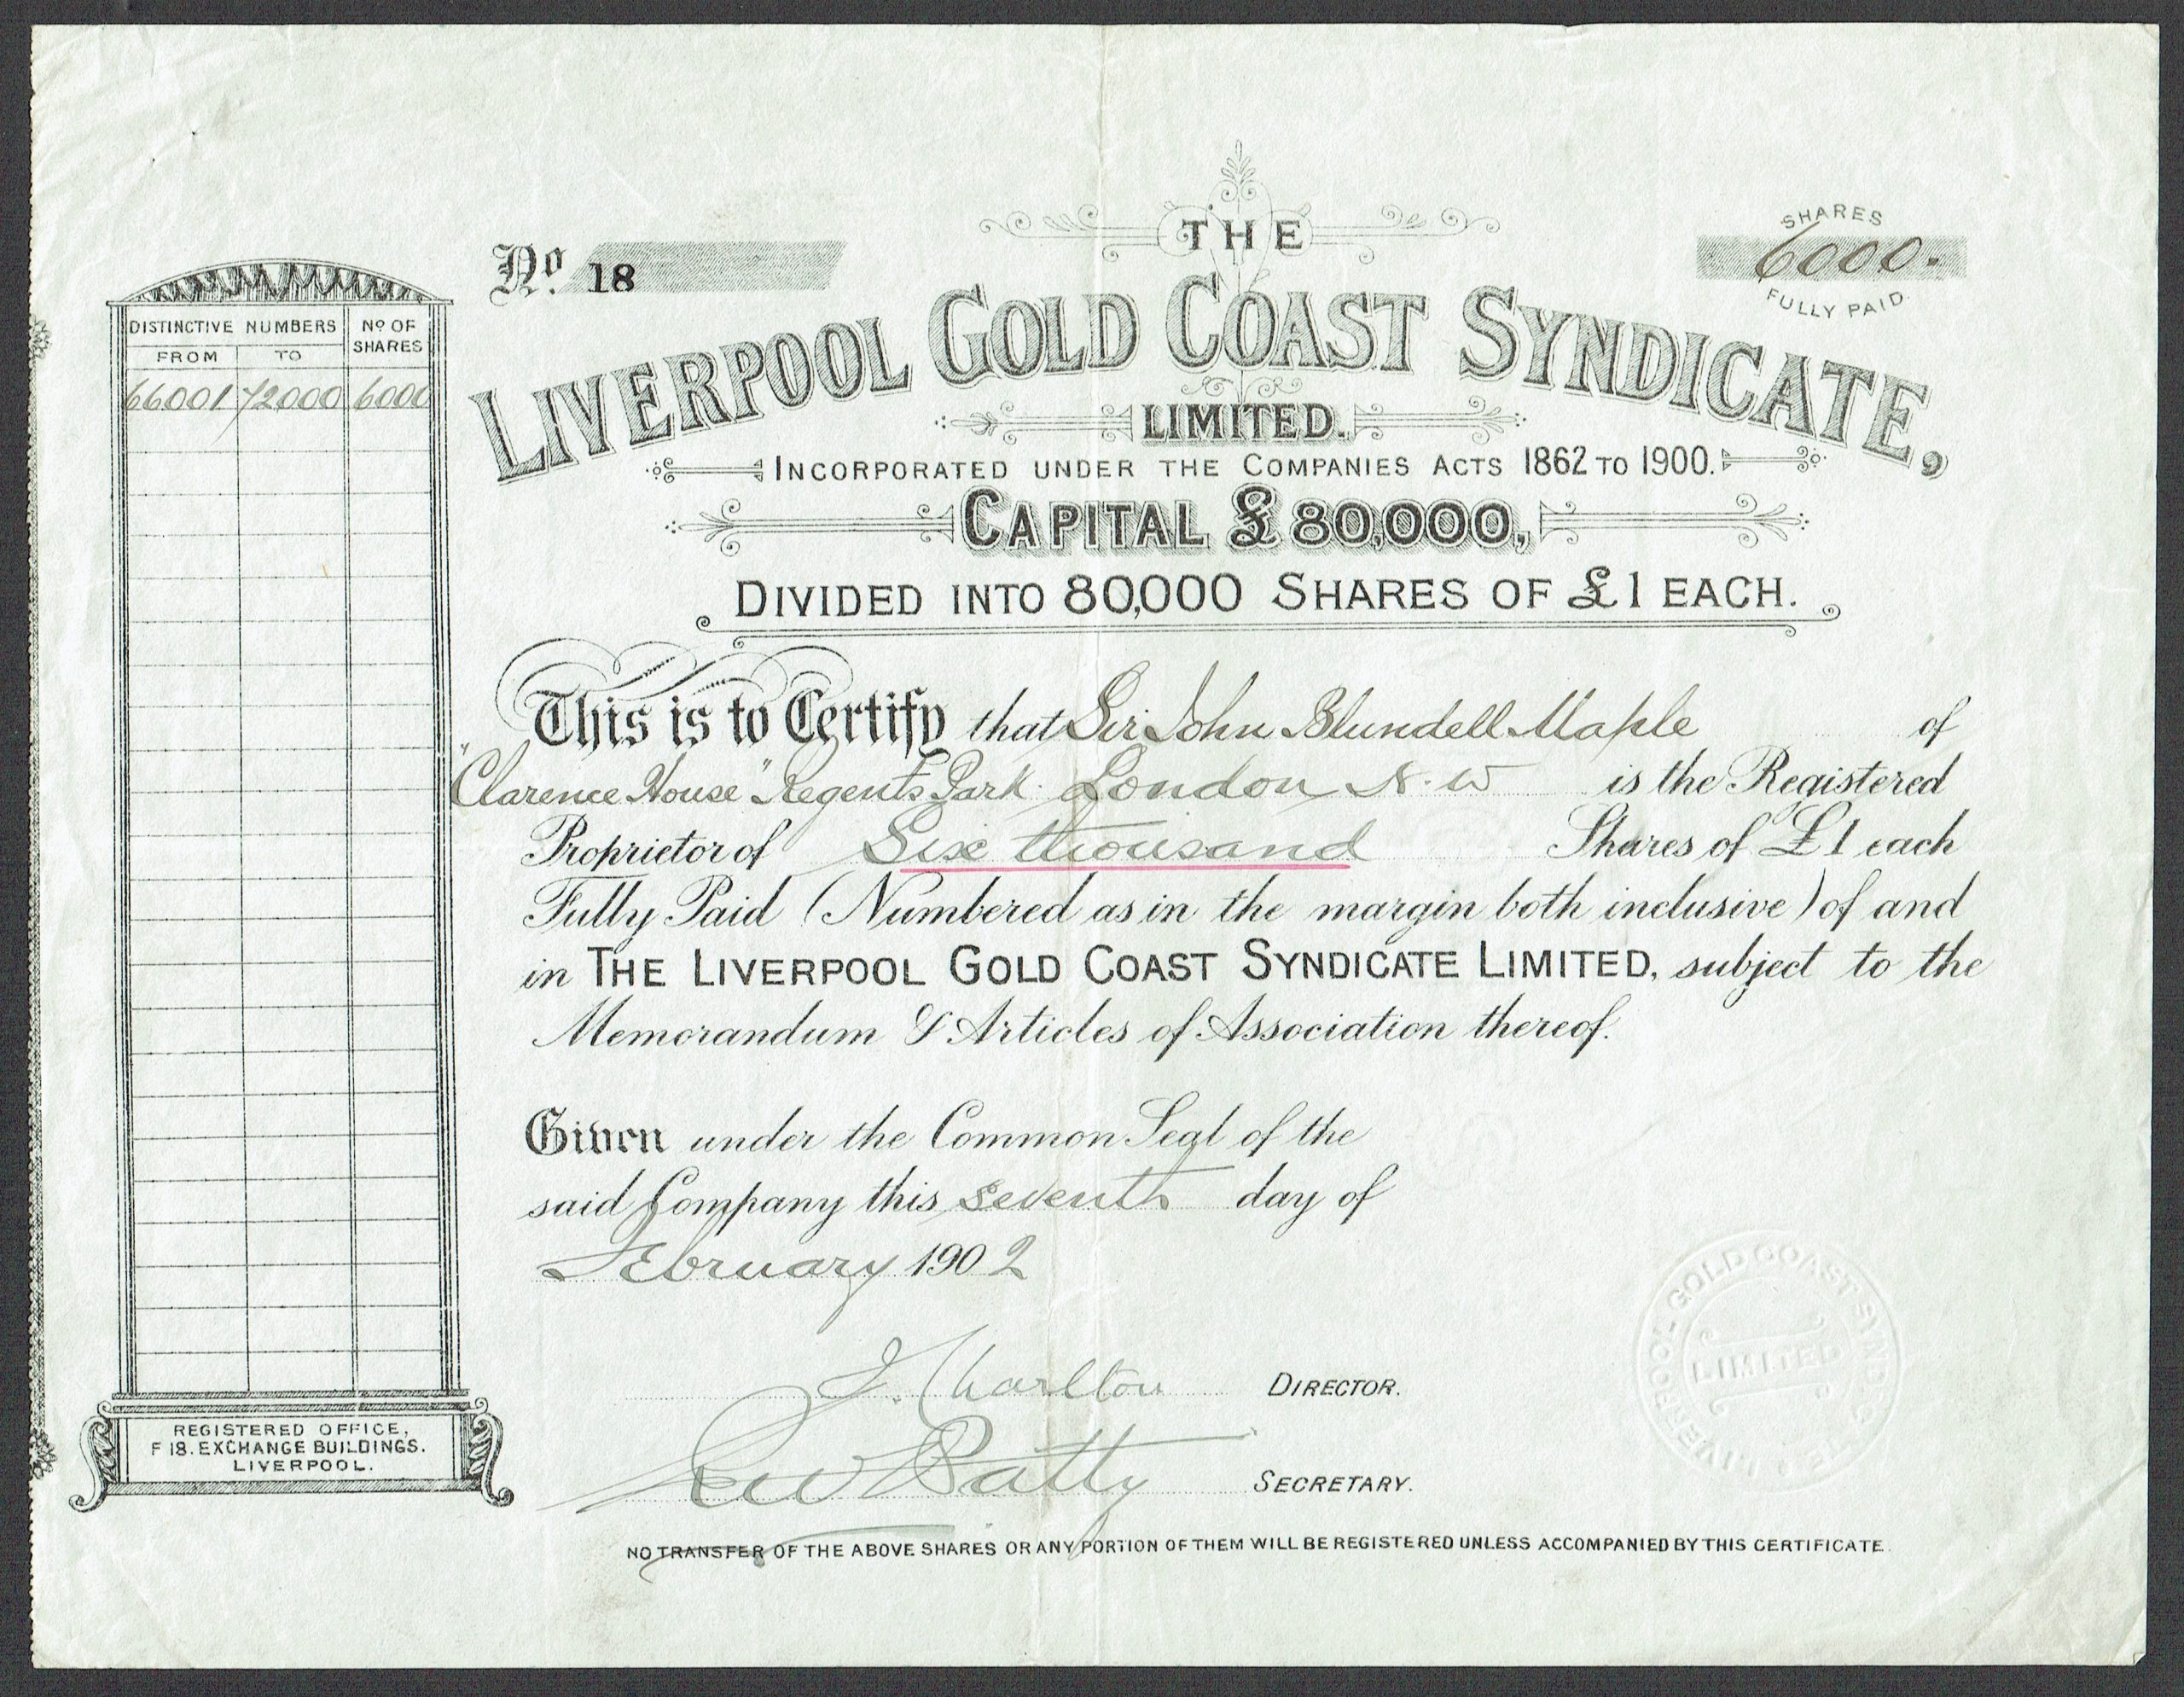 THE
Nº 18
SHARES
6000.
FULLY PAID
LIVERPOOL GOLD COAST SYNDICATE,
LIMITED.
INCORPORATED UNDER THE COMPANIES ACTS 1862 TO 1900.
CAPITAL £80,000,
DIVIDED INTO 80,000 SHARES OF £1 EACH.
DISTINCTIVE NUMBERS Nº OF SHARES
FROM TO
66001 72000 6000
This is to Certify that Sir John Blundell Maple of
"Clarence House" Regents Park London N.W is the Registered
Proprietor of Six thousand Shares of £1 each
Fully Paid (Numbered as in the margin both inclusive) of and
in THE LIVERPOOL GOLD COAST SYNDICATE LIMITED, subject to the
Memorandum & Articles of Association thereof.
Given under the Common Seal of the
said Company this seventh day of
February 1902
J. Charlton DIRECTOR.
Batty SECRETARY.
REGISTERED OFFICE,
F 18. EXCHANGE BUILDINGS.
LIVERPOOL.
LIVERPOOL GOLD COAST
LIMITED
NO TRANSFER OF THE ABOVE SHARES OR ANY PORTION OF THEM WILL BE REGISTERED UNLESS ACCOMPANIED BY THIS CERTIFICATE.